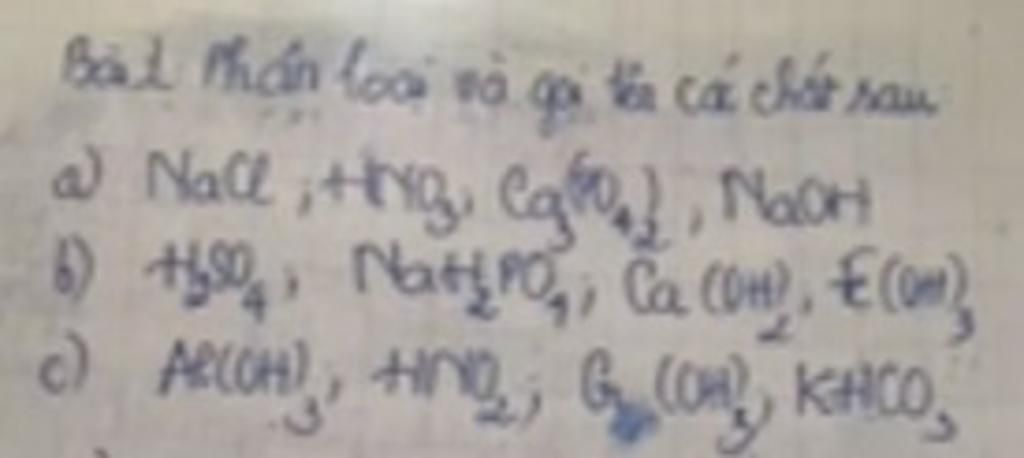 Bài 1 Phân loại và gọi tên các chất sau
a) NaCl, HNO3, Ca3(PO4)2, NaOH
b) H2SO4, NaH2PO4, Ca(OH)2, (OH)3
c) Al(OH)3, HNO2, (OH)3, KHCO3